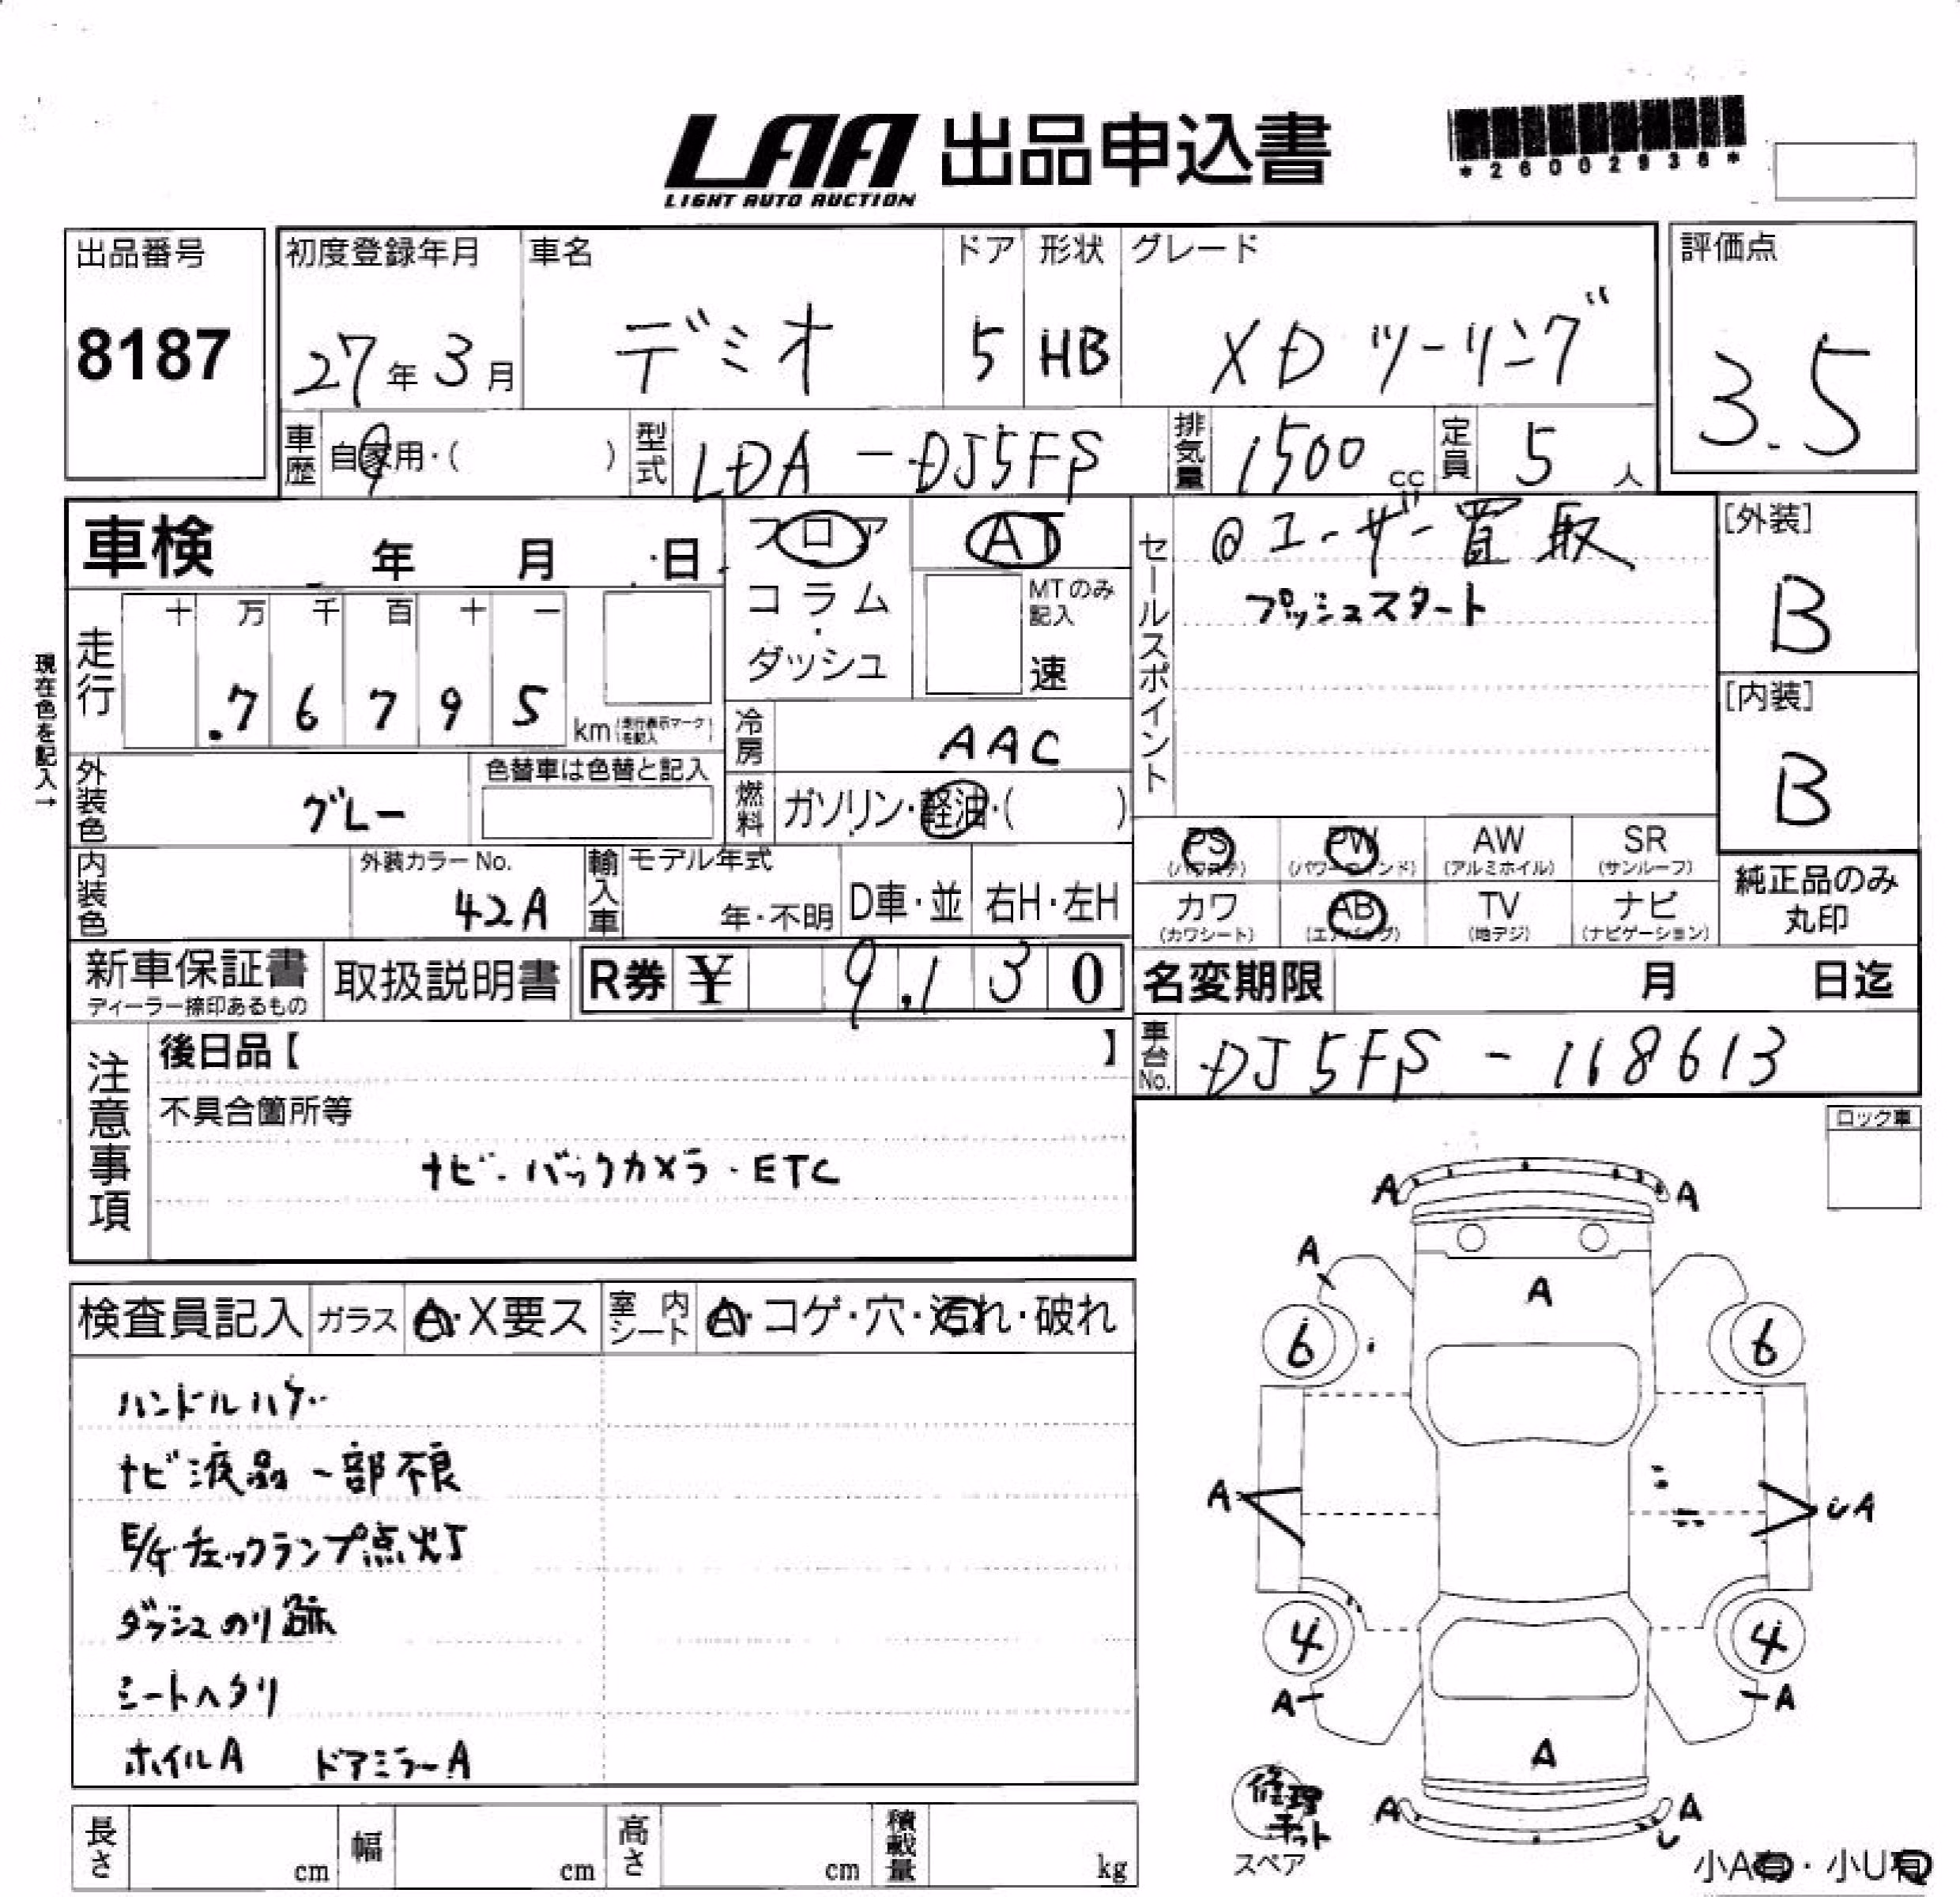 LAA 出品申込書
LIGHT AUTO AUCTION
*26002936*
出品番号
8187
初度登録年月
27年3月
車名
デミオ
ドア
5
形状
HB
グレード
XD ツーリング
評価点
3.5
車歴
自家用・( )
型式
LDA-DJ5FS
排気量
1500 cc
定員
5 人
車検 年 月 日
フロア
コラム・
ダッシュ
AT
MTのみ
記入
速
セールスポイント
@ユーザー買取
プッシュスタート
[外装]
B
[内装]
B
現在色を記入→
走行
十 万 千 百 十 一
7 6 7 9 5
km (走行表示マークを記入)
冷房
AAC
燃料
ガソリン・軽油・( )
外装色
グレー
色替車は色替と記入
PS
(パワステ)
PW
(パワーウインド)
AW
(アルミホイル)
SR
(サンルーフ)
カワ
(カワシート)
AB
(エアバッグ)
TV
(地デジ)
ナビ
(ナビゲーション)
純正品のみ
丸印
内装色
外装カラーNo.
42A
輸入車
モデル年式
年・不明
D車・並
右H・左H
新車保証書
ディーラー捺印あるもの
取扱説明書
R券 ¥ 9,130
名変期限 月 日迄
車台No.
DJ5FS - 118613
注意事項
後日品【 】
不具合箇所等
ナビ・バックカメラ・ETC
ロック車
検査員記入
ガラス
A・X要ス
室内シート
A・コゲ・穴・汚れ・破れ
ハンドルハゲ
ナビ液晶一部不良
E/Gチェックランプ点灯
ダッシュのり跡
シートヘタリ
ホイルA ドアミラーA
A A
A
A
6 6
A UA
4 4
A A
A
A A
修理キット
スペア
小A有・小U有
長さ cm
幅 cm
高さ cm
積載量 kg